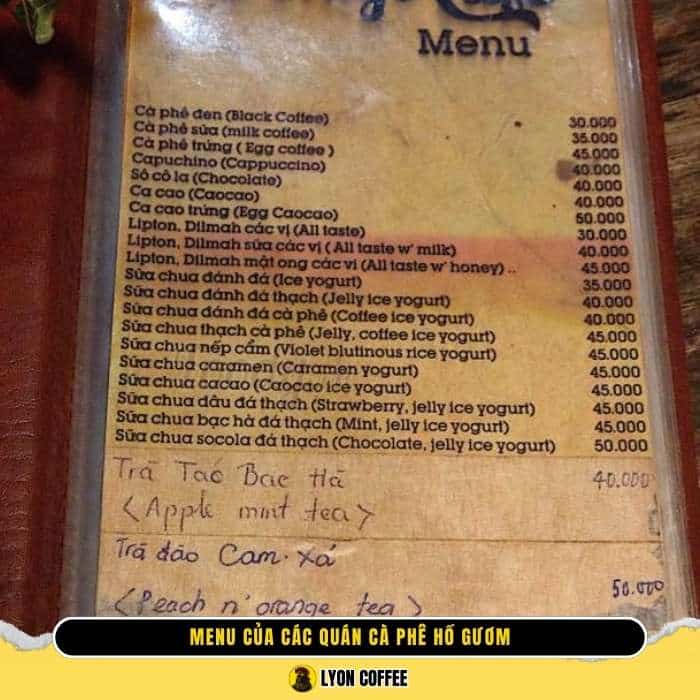 Menu
Cà phê đen (Black Coffee) 30.000
Cà phê sữa (milk coffee) 35.000
Cà phê trứng ( Egg coffee ) 45.000
Capuchino (Cappuccino) 40.000
Sô cô la (Chocolate) 40.000
Ca cao (Caocao) 40.000
Ca cao trứng (Egg Caocao) 50.000
Lipton, Dilmah các vị (All taste) 30.000
Lipton, Dilmah sữa các vị ( All taste w' milk) 40.000
Lipton, Dilmah mật ong các vị (All taste w' honey) .. 45.000
Sữa chua đánh đá (Ice yogurt) 35.000
Sữa chua đánh đá thạch (Jelly ice yogurt) 40.000
Sữa chua đánh đá cà phê (Coffee ice yogurt) 40.000
Sữa chua thạch cà phê (Jelly, coffee ice yogurt) 45.000
Sữa chua nếp cẩm (Violet blutinous rice yogurt) 45.000
Sữa chua caramen (Caramen yogurt) 45.000
Sữa chua cacao (Caocao ice yogurt) 45.000
Sữa chua dâu đá thạch (Strawberry, jelly ice yogurt) 45.000
Sữa chua bạc hà đá thạch (Mint, jelly ice yogurt) 45.000
Sữa chua socola đá thạch (Chocolate, jelly ice yogurt) 50.000
Trà Táo Bạc Hà 40.000
<Apple mint tea>
Trà đào Cam. Xả
50.000
<Peach n' orange tea>
MENU CỦA CÁC QUÁN CÀ PHÊ HỒ GƯƠM
LYON COFFEE